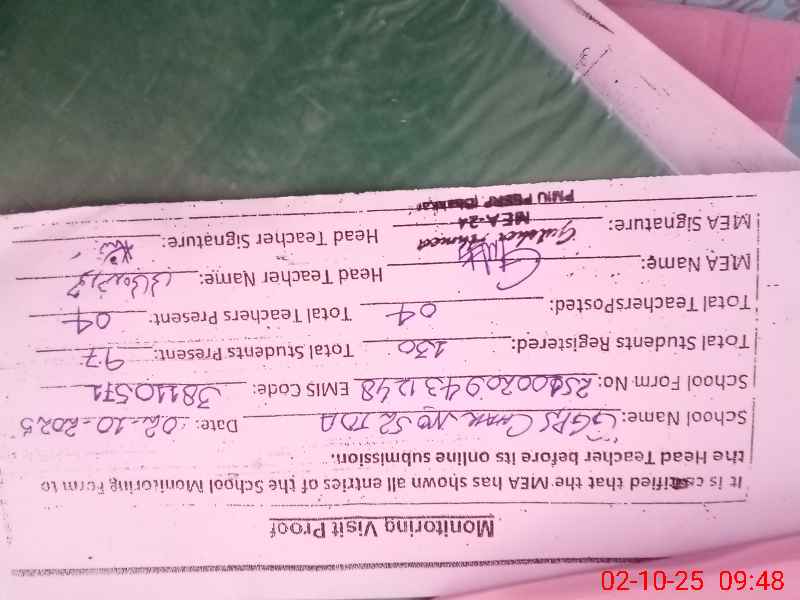 Monitoring Visit Proof
It is certified that the MEA has shown all entries of the School Monitoring Form to
the Head Teacher before its online submission.
School Name: GGPS Chak No 52 TDA Date: 02-10-2025
School Form No: 2510020943 1248 EMIS Code: 38110571
Total Students Registered: 130 Total Students Present: 97
Total TeachersPosted: 04 Total Teachers Present: 04
MEA Name: Head Teacher Name:
MEA Signature: Gulsher Ahmed Head Teacher Signature:
MEA-24
PMIU PESRP Bhakkar
02-10-25 09:48